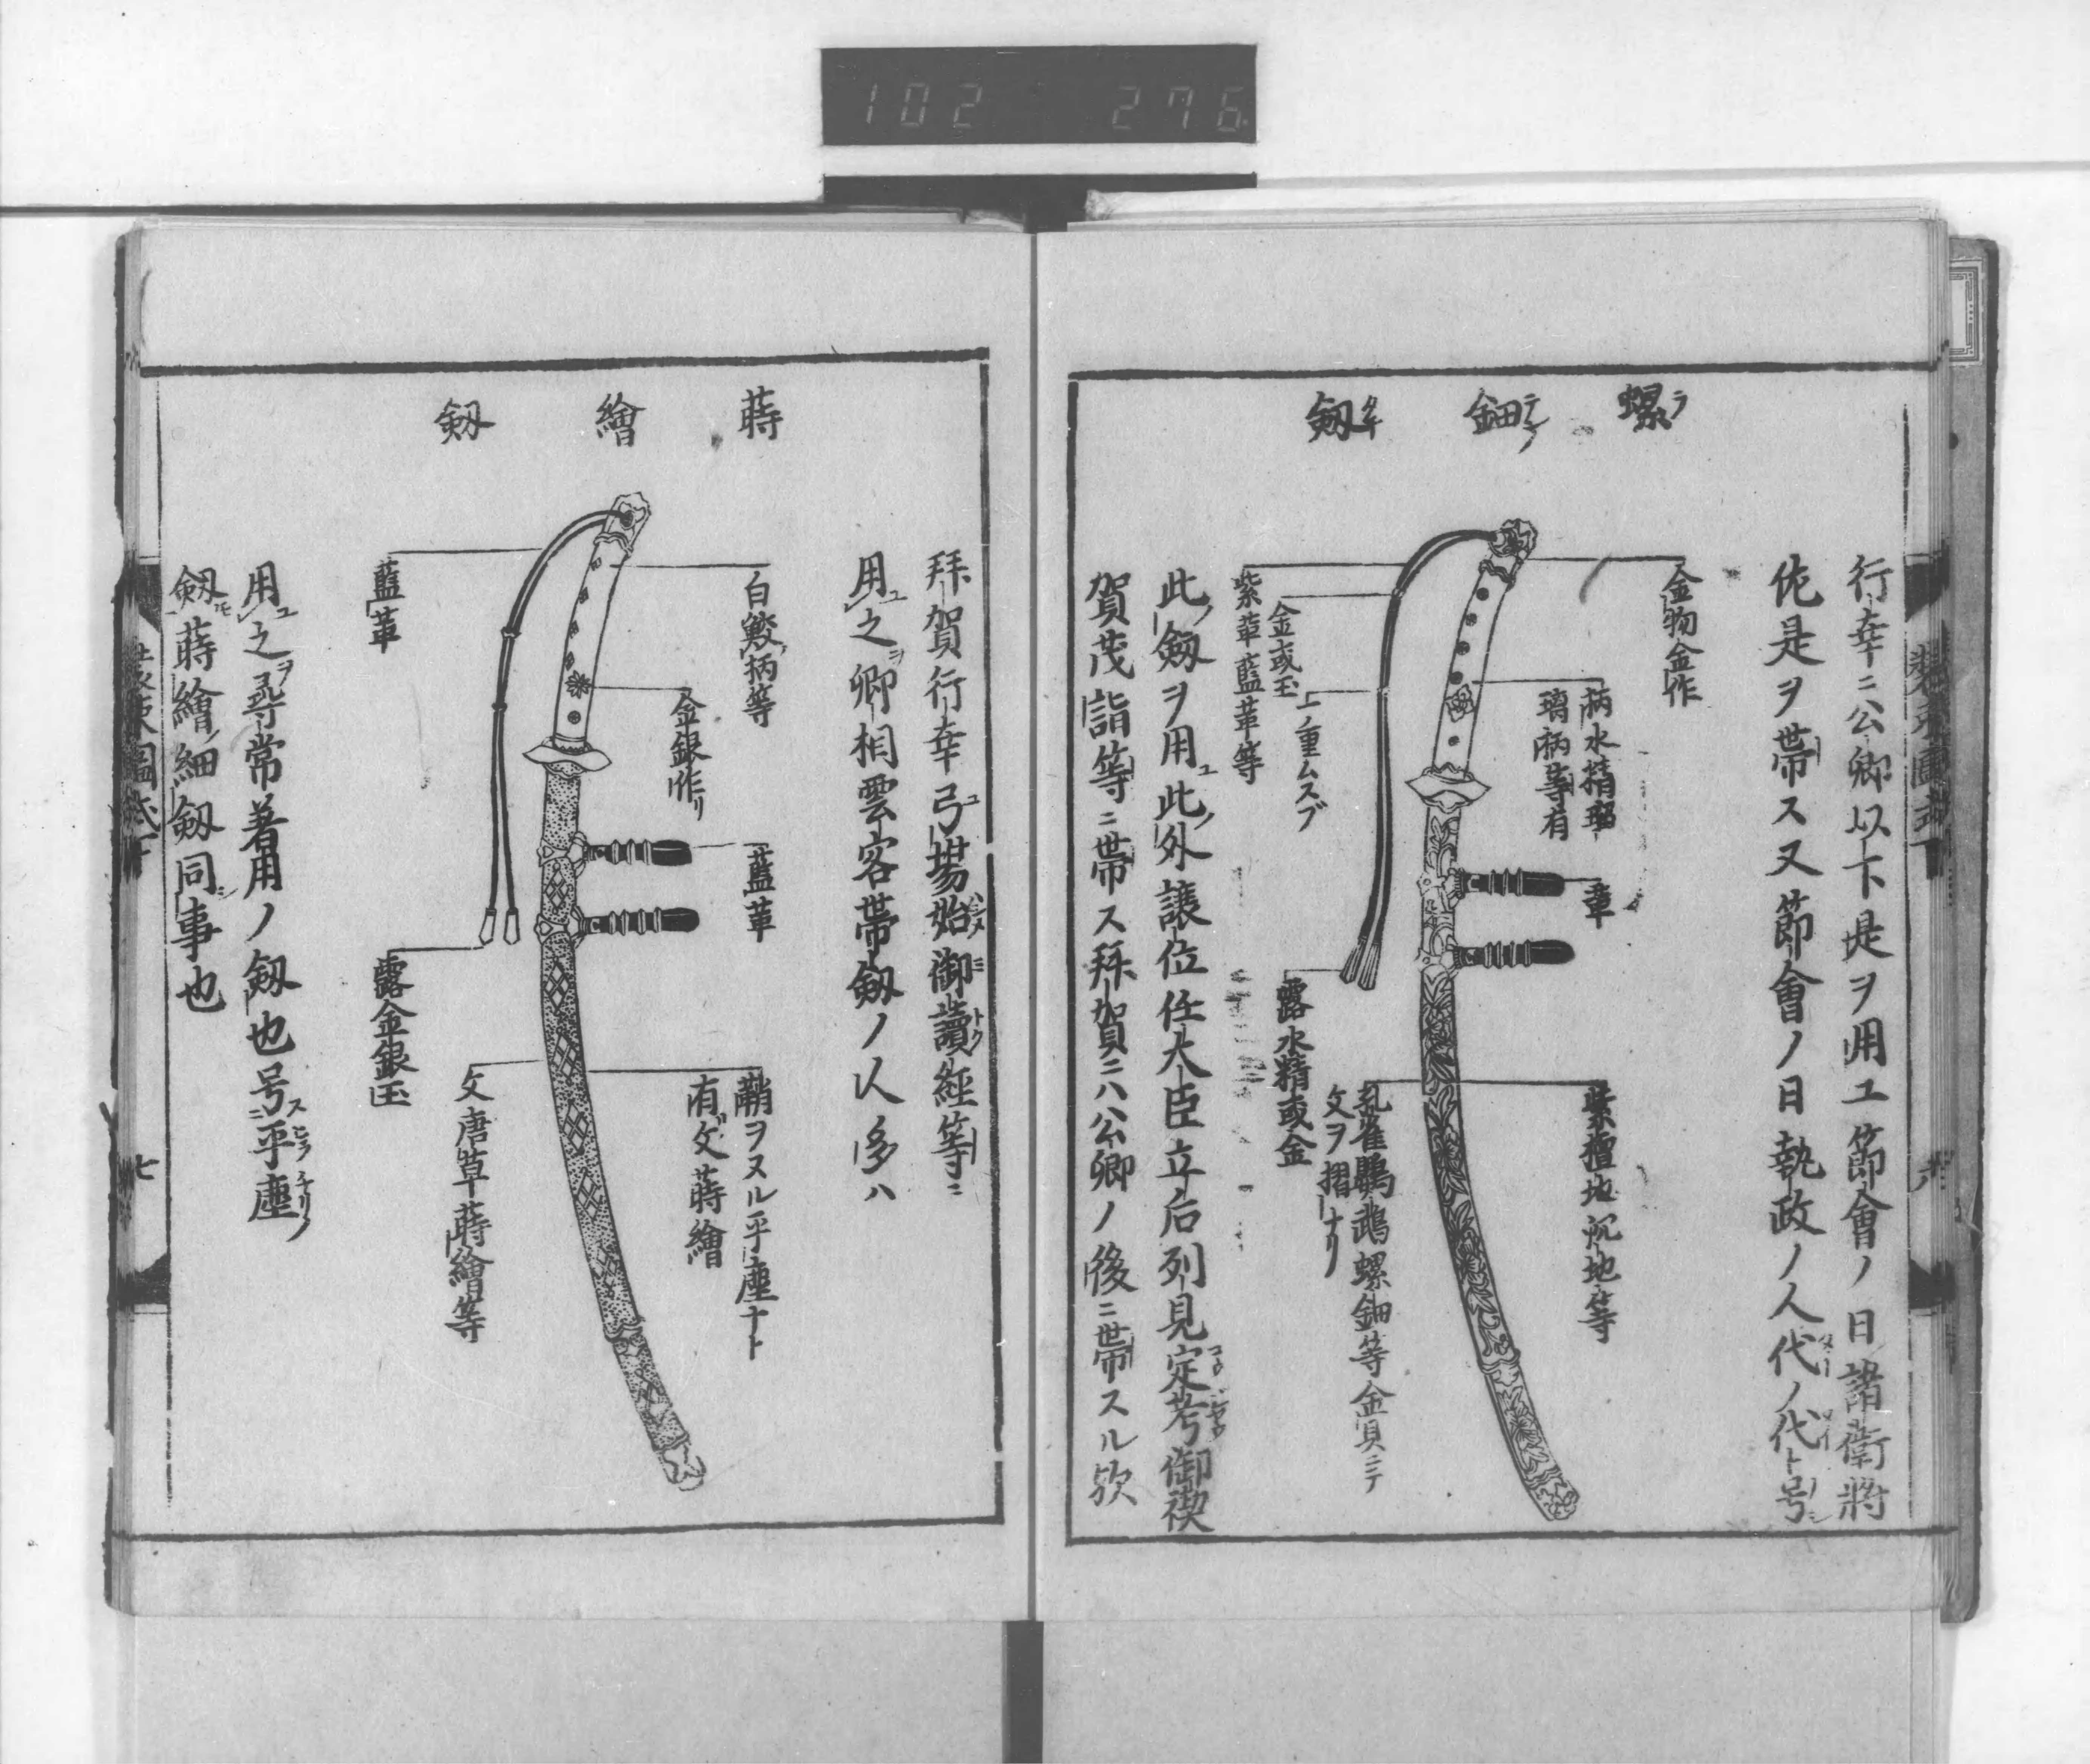 102 276
螺鈿劔
ラ デン タチ
行幸ニ公卿以下是ヲ用ユ節會ノ日諸衛將
佐是ヲ帯ス又節會ノ日執政ノ人代ノ代ト号
金物金作
柄水精瑠
璃柄等有
革
紫檀地沉地等
孔雀鸚鵡螺鈿等金貝ニテ
文ヲ摺ナリ
上ノ重ムスブ
金或玉
紫革藍革等
露水精或金
此劔ヲ用ユ此外譲位任大臣立后列見定考御禊
賀茂詣等ニ帯ス拜賀ニハ公卿ノ後ニ帯スル欤
装束圖式下
六
蒔繪劔
拜賀行幸弓場始御讀經等ニ
用ユ之ヲ卿相雲客帯劔ノ人多ハ
白鮫柄等
金銀作リ
藍革
鞘ヲヌル平塵ナト
有文蒔繪
文唐草蒔繪等
藍革
露金銀玉
用ユ之ヲ尋常着用ノ劔也号ス平塵ノ
劔蒔繪細劔同事也
装束圖式下
七